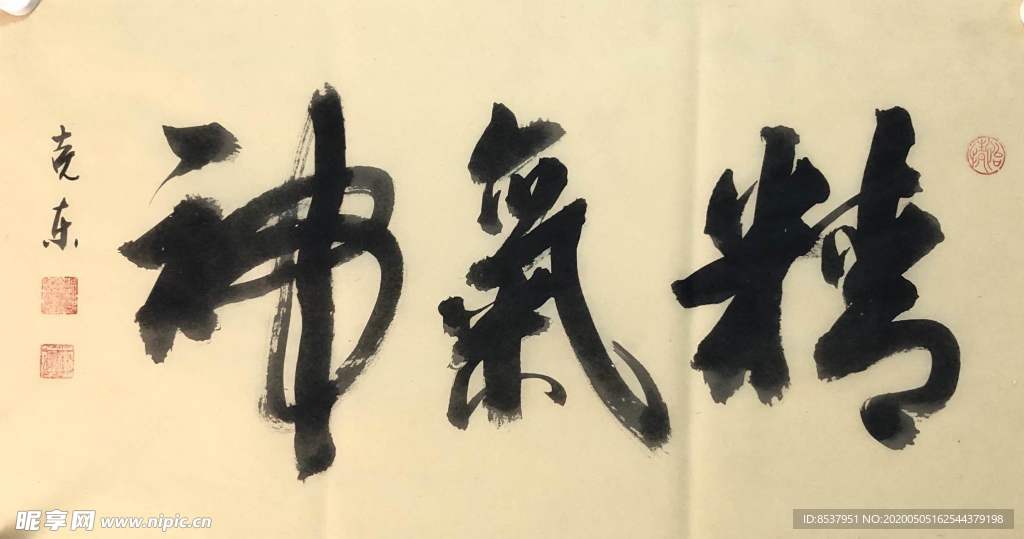 精氣神
克东
昵享网 www.nipic.cn
ID:8537951 NO:20200505162544379198